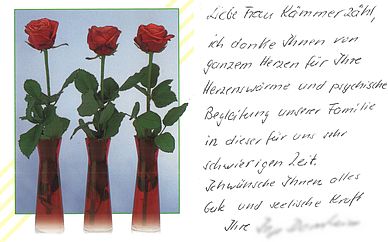 Liebe Frau Kämmer Zähl,
ich danke Ihnen von
ganzem Herzen für Ihre
Herzenswärme und psychische
Begleitung unserer Familie
in dieser für uns sehr
schwierigen Zeit.
Ich wünsche Ihnen alles
Gute und seelische Kraft
Ihre